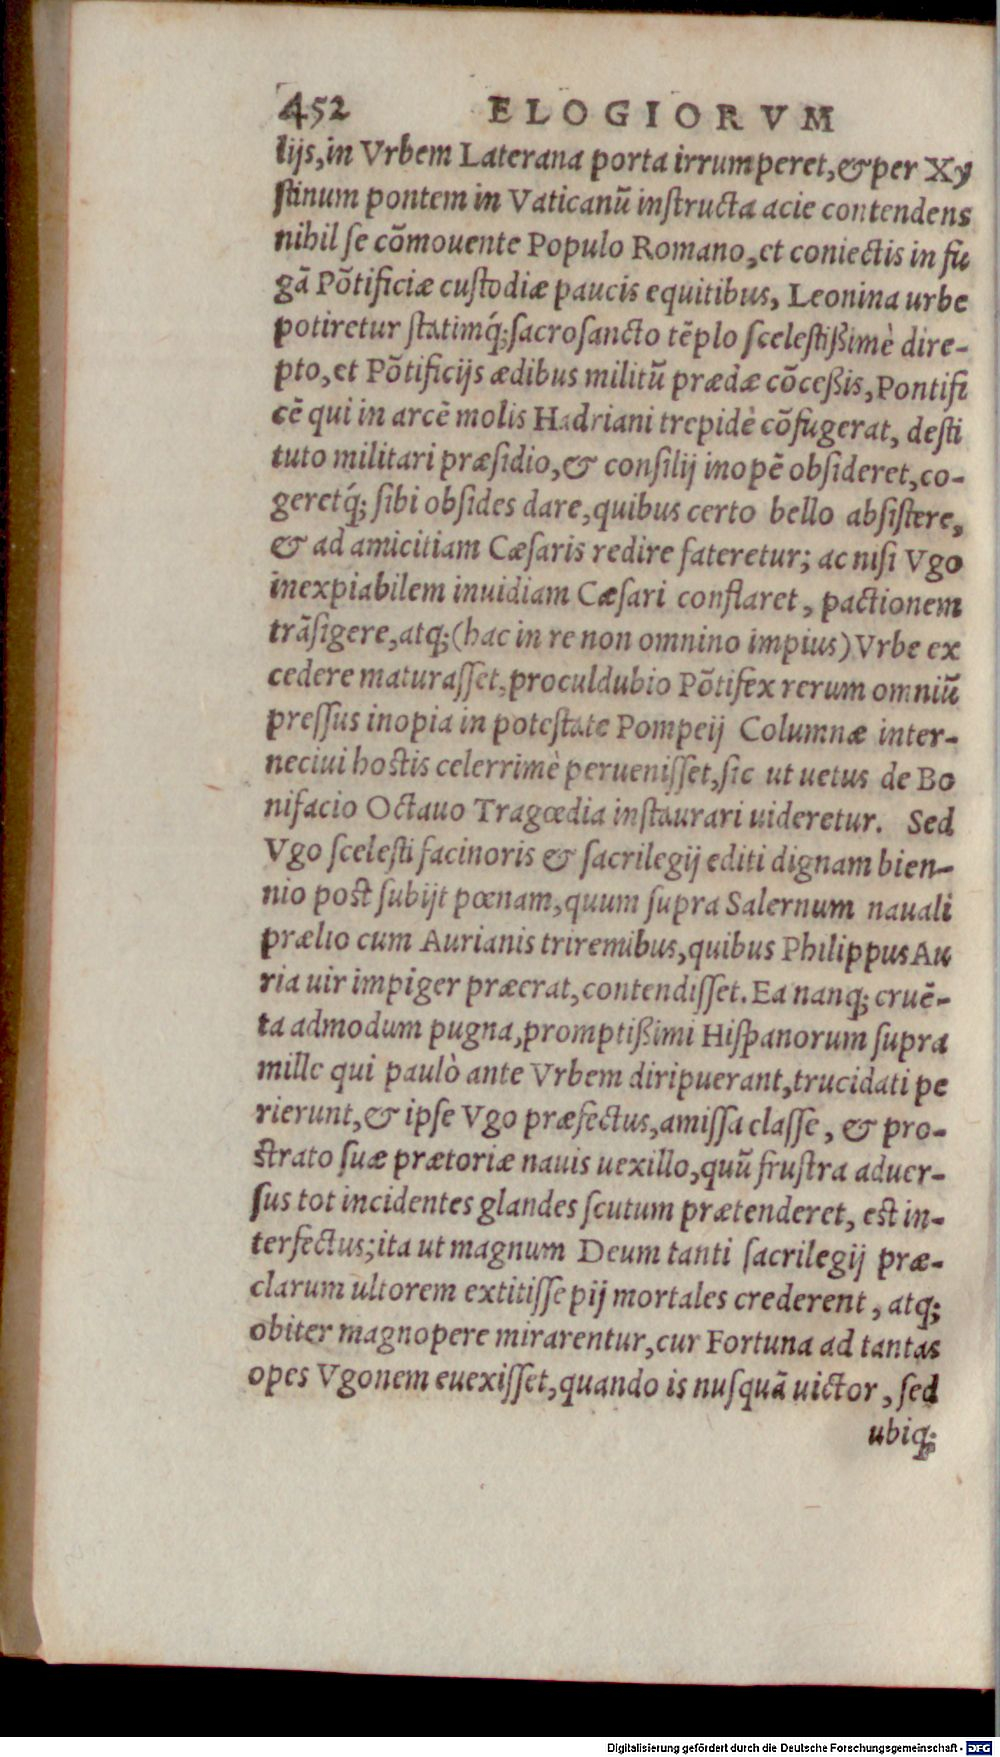 452 ELOGIORVM
lijs,in Vrbem Laterana porta irrumperet,&per Xy
ſtinum pontem in Vaticanũ inſtructa acie contendens
nihil ſe cõmouente Populo Romano,et coniectis in fu
gã Põtificiæ cuſtodiæ paucis equitibus, Leonina urbe
potiretur ſtatimq́;ſacroſancto tẽplo ſceleſtißimè dire-
pto,et Põtificijs ædibus militũ prædæ cõceßis,Pontifi
cẽ qui in arcẽ molis Hadriani trepidè cõfugerat, deſti
tuto militari præſidio,& conſilij inopẽ obſideret,co-
geretq́; ſibi obſides dare,quibus certo bello abſiſtere,
& ad amicitiam Cæſaris redire fateretur; ac niſi Vgo
inexpiabilem inuidiam Cæſari conflaret, pactionem
trãſigere,atq;(hac in re non omnino impius)Vrbe ex
cedere maturaſſet,proculdubio Põtifex rerum omniũ
preſſus inopia in poteſtate Pompeij Columnæ inter-
neciui hoſtis celerrimè perueniſſet,ſic ut uetus de Bo
nifacio Octauo Tragœdia inſtaurari uideretur. Sed
Vgo ſceleſti facinoris & ſacrilegij editi dignam bien-
nio poſt ſubijt pœnam,quum ſupra Salernum nauali
prælio cum Aurianis triremibus,quibus Philippus Au
ria uir impiger præerat,contendiſſet.Ea nanq; cruẽ-
ta admodum pugna,promptißimi Hiſpanorum ſupra
mille qui paulò ante Vrbem diripuerant,trucidati pe
rierunt,& ipſe Vgo præfectus,amiſſa claſſe, & pro-
ſtrato ſuæ prætoriæ nauis uexillo,quũ fruſtra aduer-
ſus tot incidentes glandes ſcutum prætenderet, eſt in-
terfectus;ita ut magnum Deum tanti ſacrilegij præ-
clarum ultorem extitiſſe pij mortales crederent, atq;
obiter magnopere mirarentur,cur Fortuna ad tantas
opes Vgonem euexiſſet,quando is nuſquã uictor, ſed
ubiq;
Digitalisierung gefördert durch die Deutsche Forschungsgemeinschaft - DFG